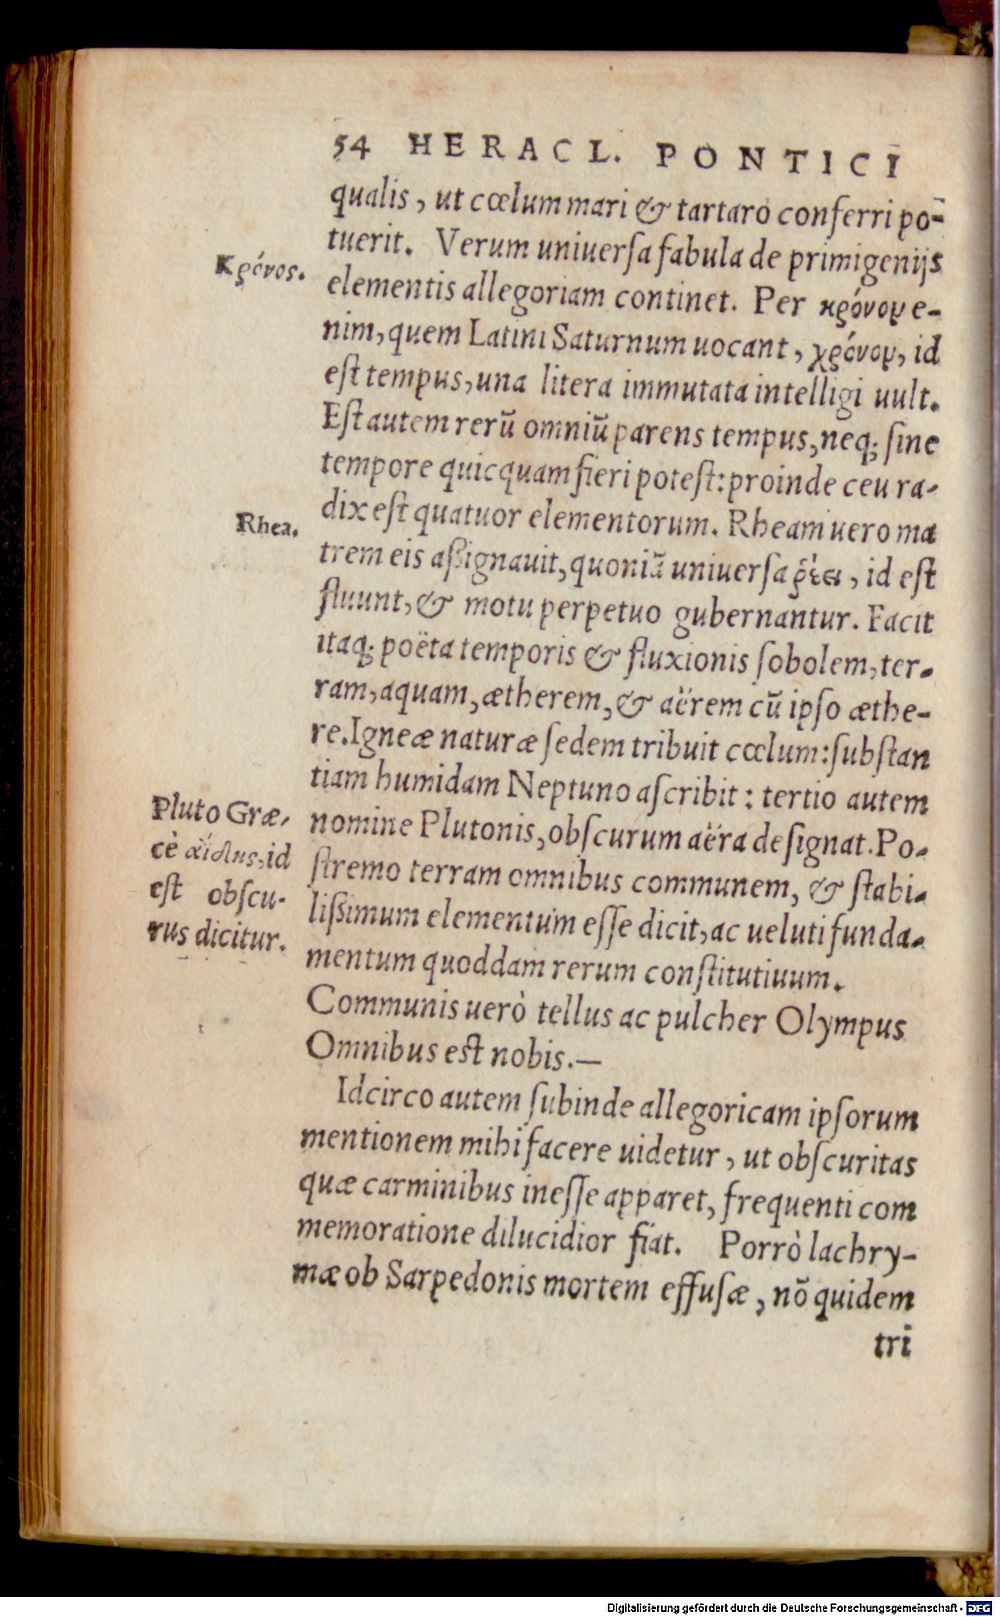 54 HERACL. PONTICI
qualis, ut cœlum mari & tartaro conferri po-
tuerit. Verum uniuersa fabula de primigenijs
Κρόνος.
elementis allegoriam continet. Per κρόνον e-
nim, quem Latini Saturnum uocant, χρόνον, id
est tempus, una litera immutata intelligi uult.
Est autem rerũ omniũ parens tempus, neq; sine
tempore quicquam fieri potest: proinde ceu ra-
dix est quatuor elementorum. Rheam uero ma
Rhea.
trem eis aßignauit, quoniã uniuersa ῥέει, id est
fluunt, & motu perpetuo gubernantur. Facit
itaq; poëta temporis & fluxionis sobolem, ter-
ram, aquam, ætherem, & aërem cũ ipso æthe-
re. Igneæ naturæ sedem tribuit cœlum: substan
tiam humidam Neptuno ascribit: tertio autem
nomine Plutonis, obscurum aëra designat. Po-
stremo terram omnibus communem, & stabi-
lißimum elementum esse dicit, ac ueluti funda-
mentum quoddam rerum constitutiuum.
Pluto Græ-
cè ἀΐδης, id
est obscu-
rus dicitur.
Communis uerò tellus ac pulcher Olympus
Omnibus est nobis.—
Idcirco autem subinde allegoricam ipsorum
mentionem mihi facere uidetur, ut obscuritas
quæ carminibus inesse apparet, frequenti com
memoratione dilucidior fiat. Porrò lachry-
mæ ob Sarpedonis mortem effusæ, nõ quidem
tri
Digitalisierung gefördert durch die Deutsche Forschungsgemeinschaft - DFG